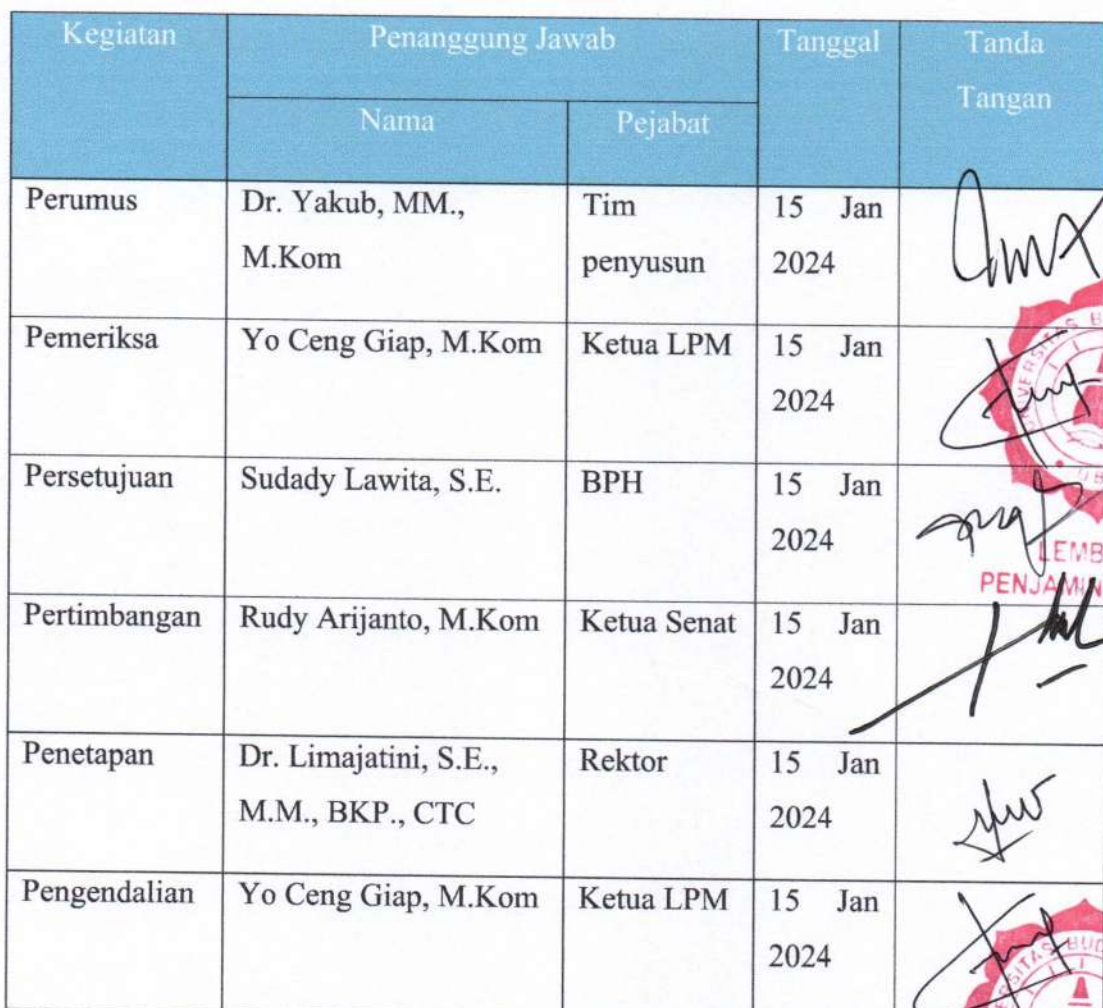 Kegiatan
Penanggung Jawab
Tanggal
Tanda
Tangan
Nama
Pejabat
Perumus
Dr. Yakub, MM.,
M.Kom
Tim
penyusun
15 Jan
2024
Pemeriksa
Yo Ceng Giap, M.Kom
Ketua LPM
15 Jan
2024
Persetujuan
Sudady Lawita, S.E.
BPH
15 Jan
2024
LEMB
PENJAMIN
Pertimbangan
Rudy Arijanto, M.Kom
Ketua Senat
15 Jan
2024
Penetapan
Dr. Limajatini, S.E.,
M.M., BKP., CTC
Rektor
15 Jan
2024
Pengendalian
Yo Ceng Giap, M.Kom
Ketua LPM
15 Jan
2024